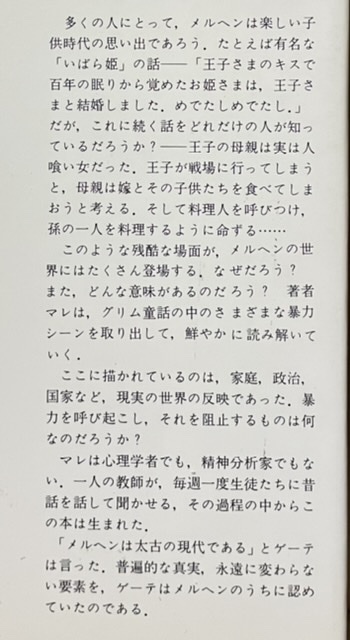 多くの人にとって，メルヘンは楽しい子
供時代の思い出であろう．たとえば有名な
「いばら姫」の話――「王子さまのキスで
百年の眠りから覚めたお姫さまは，王子さ
まと結婚しました．めでたしめでたし．」
だが，これに続く話をどれだけの人が知っ
ているだろうか？――王子の母親は実は人
喰い女だった．王子が戦場に行ってしまう
と，母親は嫁とその子供たちを食べてしま
おうと考える．そして料理人を呼びつけ，
孫の一人を料理するように命ずる……
このような残酷な場面が，メルヘンの世
界にはたくさん登場する．なぜだろう？
また，どんな意味があるのだろう？　著者
マレは，グリム童話の中のさまざまな暴力
シーンを取り出して，鮮やかに読み解いて
いく．
ここに描かれているのは，家庭，政治，
国家など，現実の世界の反映であった．暴
力を呼び起こし，それを阻止するものは何
なのだろうか？
マレは心理学者でも，精神分析家でもな
い．一人の教師が，毎週一度生徒たちに昔
話を話して聞かせる，その過程の中からこ
の本は生まれた．
「メルヘンは太古の現代である」とゲーテ
は言った．普遍的な真実，永遠に変わらな
い要素を，ゲーテはメルヘンのうちに認め
ていたのである．